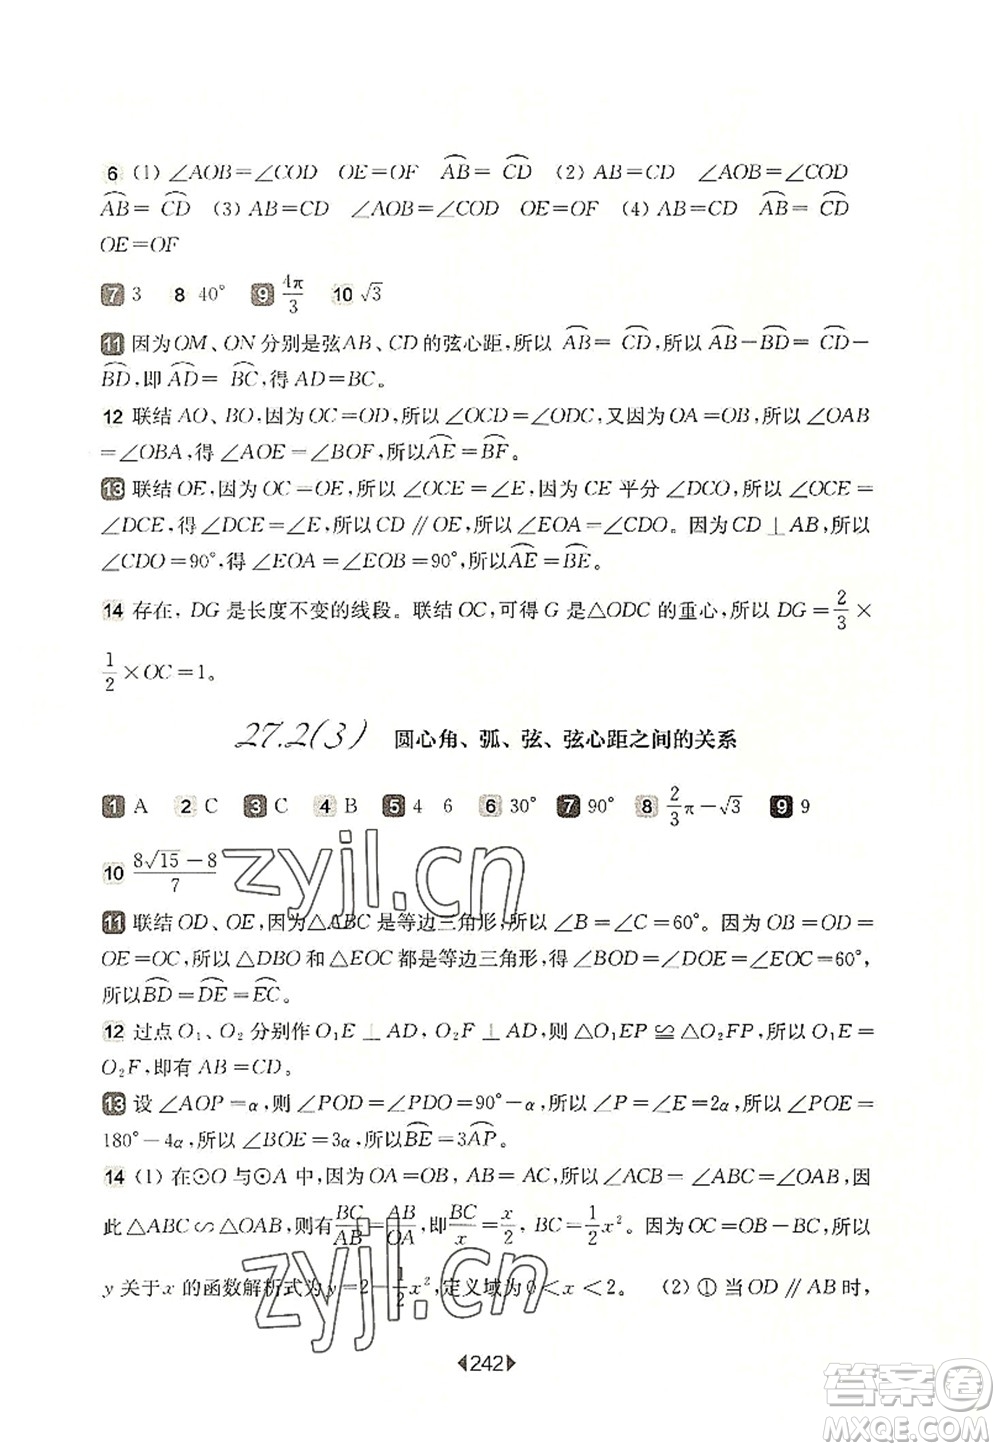 6 (1) ∠AOB=∠COD OE=OF ⌒AB=⌒CD (2) AB=CD ∠AOB=∠COD
⌒AB=⌒CD (3) AB=CD ∠AOB=∠COD OE=OF (4) AB=CD ⌒AB=⌒CD
OE=OF
7 3 8 40° 9 4π/3 10 √3
11 因为OM、ON 分别是弦AB、CD 的弦心距,所以 ⌒AB=⌒CD,所以⌒AB-⌒BD=⌒CD-
⌒BD,即⌒AD=⌒BC,得 AD=BC。
12 联结 AO、BO,因为 OC=OD,所以∠OCD=∠ODC,又因为 OA=OB,所以∠OAB
=∠OBA,得∠AOE=∠BOF,所以⌒AE=⌒BF。
13 联结 OE,因为 OC=OE,所以∠OCE=∠E,因为 CE 平分∠DCO,所以∠OCE=
∠DCE,得∠DCE=∠E,所以 CD∥OE,所以∠EOA=∠CDO。因为 CD⊥AB,所以
∠CDO=90°,得∠EOA=∠EOB=90°,所以⌒AE=⌒BE。
14 存在,DG 是长度不变的线段。联结 OC,可得 G 是△ODC 的重心,所以 DG=2/3×
1/2×OC=1。
27.2(3) 圆心角、弧、弦、弦心距之间的关系
1 A 2 C 3 C 4 B 5 4 6 6 30° 7 90° 8 2/3π-√3 9 9
10 (8√15-8)/7
11 联结 OD、OE,因为△ABC 是等边三角形,所以∠B=∠C=60°。因为 OB=OD=
OE=OC,所以△DBO 和△EOC 都是等边三角形,所以∠BOD=∠DOE=∠EOC=60°,
所以⌒BD=⌒DE=⌒EC。
12 过点 O₁、O₂ 分别作 O₁E⊥AD,O₂F⊥AD,则△O₁EP≌△O₂FP,所以 O₁E=
O₂F,即有 AB=CD。
13 设∠AOP=α,则∠POD=∠PDO=90°-α,所以∠P=∠E=2α,所以∠POE=
180°-4α,所以∠BOE=3α,所以⌒BE=3⌒AP。
14 (1) 在⊙O 与⊙A 中,因为 OA=OB,AB=AC,所以∠ACB=∠ABC=∠OAB,因
此△ABC∽△OAB,则有BC/AB=AB/OA,即BC/x=x/2,BC=1/2x²。因为 OC=OB-BC,所以
y 关于 x 的函数解析式为 y=2-1/2x²,定义域为 0<x<2。 (2) ① 当 OD∥AB 时,
242
zyjl.cn
zyjl.cn
答案圈
MXQE.COM